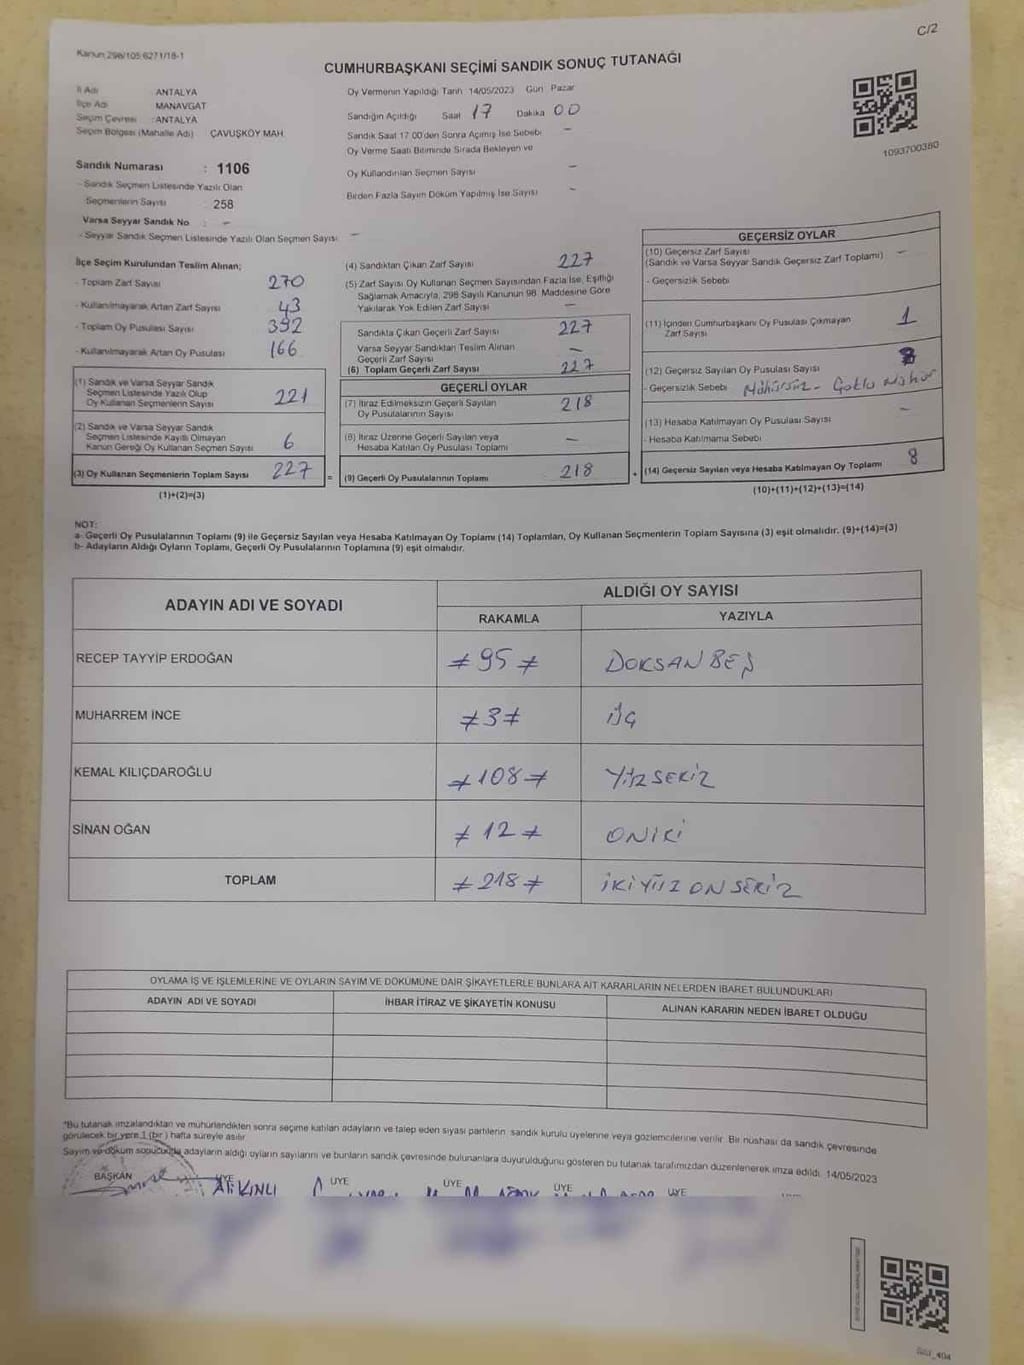 C/2
Kanun 298/105 6271/18-1
CUMHURBAŞKANI SEÇİMİ SANDIK SONUÇ TUTANAĞI
İl Adı : ANTALYA
İlçe Adı : MANAVGAT
Seçim Çevresi : ANTALYA
Seçim Bölgesi (Mahalle Adı) : ÇAVUŞKÖY MAH.
Oy Vermenin Yapıldığı Tarih 14/05/2023 Gün Pazar
Sandığın Açıldığı Saat 17 Dakika 00
Sandık Saat 17.00'den Sonra Açılmış İse Sebebi –
Oy Verme Saati Bitiminde Sırada Bekleyen ve
Oy Kullandırılan Seçmen Sayısı –
Birden Fazla Sayım Döküm Yapılmış İse Sayısı –
1093700380
Sandık Numarası : 1106
- Sandık Seçmen Listesinde Yazılı Olan
Seçmenlerin Sayısı : 258
Varsa Seyyar Sandık No : –
- Seyyar Sandık Seçmen Listesinde Yazılı Olan Seçmen Sayısı: –
İlçe Seçim Kurulundan Teslim Alınan;
- Toplam Zarf Sayısı 270
- Kullanılmayarak Artan Zarf Sayısı 43
- Toplam Oy Pusulası Sayısı 392
- Kullanılmayarak Artan Oy Pusulası 166
(1) Sandık ve Varsa Seyyar Sandık
Seçmen Listesinde Yazılı Olup
Oy Kullanan Seçmenlerin Sayısı 221
(2) Sandık ve Varsa Seyyar Sandık
Seçmen Listesinde Kayıtlı Olmayan
Kanun Gereği Oy Kullanan Seçmen Sayısı 6
(3) Oy Kullanan Seçmenlerin Toplam Sayısı 227
(1)+(2)=(3)
(4) Sandıktan Çıkan Zarf Sayısı 227
(5) Zarf Sayısı Oy Kullanan Seçmen Sayısından Fazla İse, Eşitliği
Sağlamak Amacıyla, 298 Sayılı Kanunun 98. Maddesine Göre
Yakılarak Yok Edilen Zarf Sayısı –
Sandıkta Çıkan Geçerli Zarf Sayısı 227
Varsa Seyyar Sandıktan Teslim Alınan
Geçerli Zarf Sayısı –
(6) Toplam Geçerli Zarf Sayısı 227
GEÇERLİ OYLAR
(7) İtiraz Edilmeksizin Geçerli Sayılan
Oy Pusulalarının Sayısı 218
(8) İtiraz Üzerine Geçerli Sayılan veya
Hesaba Katılan Oy Pusulası Toplamı –
= (9) Geçerli Oy Pusulalarının Toplamı 218
GEÇERSİZ OYLAR
(10) Geçersiz Zarf Sayısı
(Sandık ve Varsa Seyyar Sandık Geçersiz Zarf Toplamı) –
- Geçersizlik Sebebi
(11) İçinden Cumhurbaşkanı Oy Pusulası Çıkmayan
Zarf Sayısı 1
(12) Geçersiz Sayılan Oy Pusulası Sayısı
- Geçersizlik Sebebi Mühürsüz - Çoklu Mühür
(13) Hesaba Katılmayan Oy Pusulası Sayısı –
- Hesaba Katılmama Sebebi
+ (14) Geçersiz Sayılan veya Hesaba Katılmayan Oy Toplamı 8
(10)+(11)+(12)+(13)=(14)
NOT:
a- Geçerli Oy Pusulalarının Toplamı (9) ile Geçersiz Sayılan veya Hesaba Katılmayan Oy Toplamı (14) Toplamları, Oy Kullanan Seçmenlerin Toplam Sayısına (3) eşit olmalıdır. (9)+(14)=(3)
b- Adayların Aldığı Oyların Toplamı, Geçerli Oy Pusulalarının Toplamına (9) eşit olmalıdır.
ADAYIN ADI VE SOYADI ALDIĞI OY SAYISI
RAKAMLA YAZIYLA
RECEP TAYYİP ERDOĞAN ≠ 95 ≠ DOKSAN BEŞ
MUHARREM İNCE ≠ 3 ≠ ÜÇ
KEMAL KILIÇDAROĞLU ≠ 108 ≠ YÜZ SEKİZ
SİNAN OĞAN ≠ 12 ≠ ONİKİ
TOPLAM ≠ 218 ≠ İKİ YÜZ ON SEKİZ
OYLAMA İŞ VE İŞLEMLERİNE VE OYLARIN SAYIM VE DÖKÜMÜNE DAİR ŞİKAYETLERLE BUNLARA AİT KARARLARIN NELERDEN İBARET BULUNDUKLARI
ADAYIN ADI VE SOYADI İHBAR İTİRAZ VE ŞİKAYETİN KONUSU ALINAN KARARIN NEDEN İBARET OLDUĞU
"Bu tutanak imzalandıktan ve mühürlendikten sonra seçime katılan adayların ve talep eden siyasi partilerin, sandık kurulu üyelerine veya gözlemcilerine verilir. Bir nüshası da sandık çevresinde
görülecek bir yere 1 (bir) hafta süreyle asılır.
Sayım ve döküm sonucunda adayların aldığı oyların sayılarını ve bunların sandık çevresinde bulunanlara duyurulduğunu gösteren bu tutanak tarafımızdan düzenlenerek imza edildi. 14/05/2023
BAŞKAN ÜYE ÜYE ÜYE ÜYE ÜYE
Ali KINLI